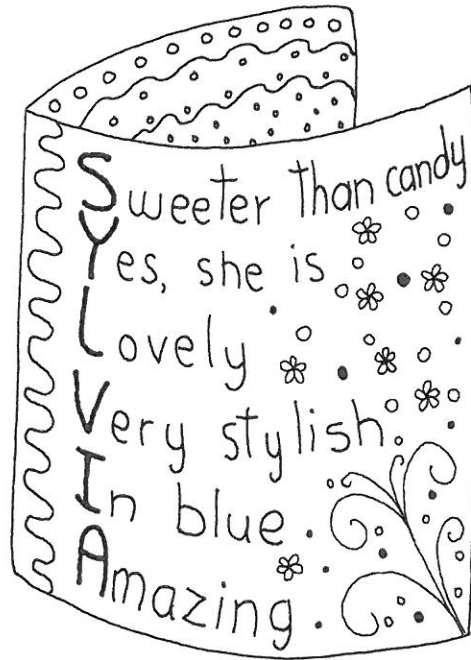 Sweeter Than candy
Yes, she is
Lovely
Very stylish
In blue.
Amazing.